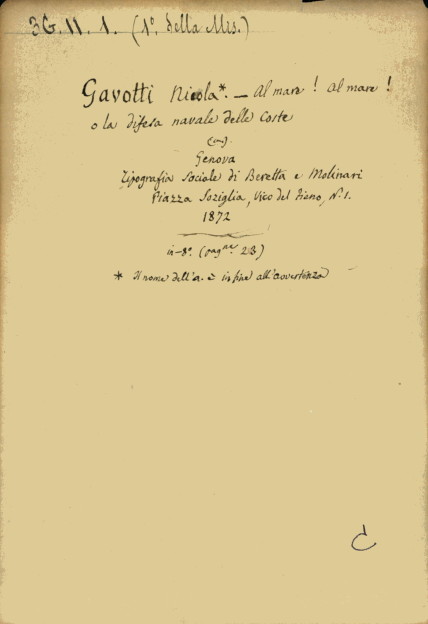 3G.II.1. (1º della Mis.)
Gavotti Nicola*. — Al mare! Al mare!
o la difesa navale delle Coste
Genova
Tipografia Sociale di Beretta e Molinari
Piazza Soziglia, Vico del Fieno, N. 1.
1872
in-8º. (pagne 213)
* Il nome dell'a. è in fine all'avvertenza
C